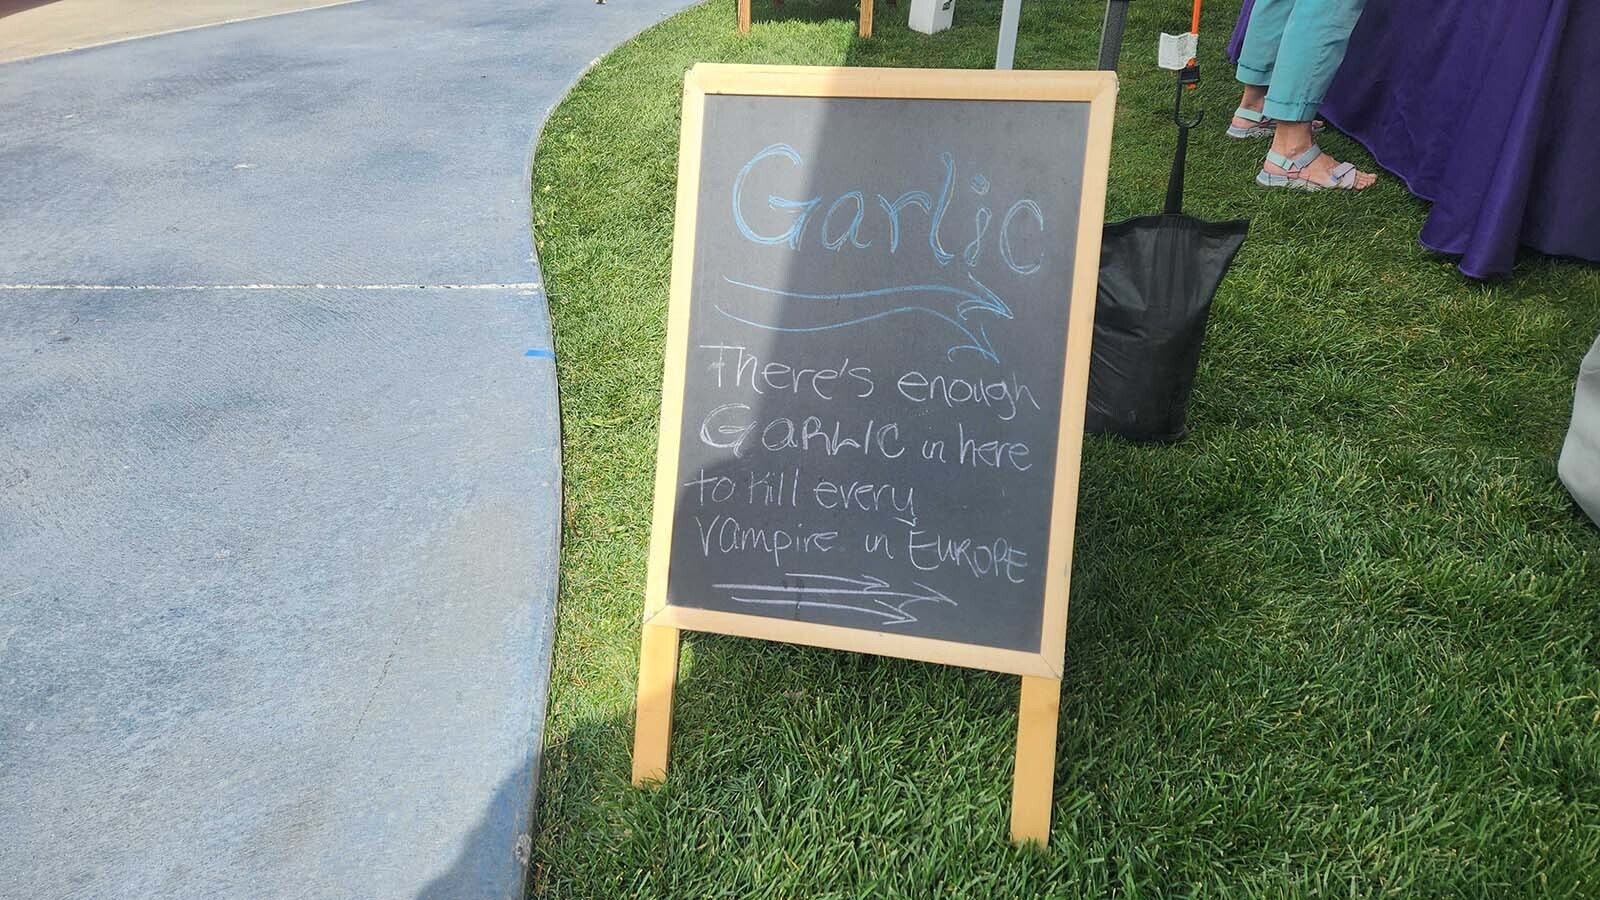 Garlic
There's enough
GARLIC in here
to Kill every
Vampire in EUROPE